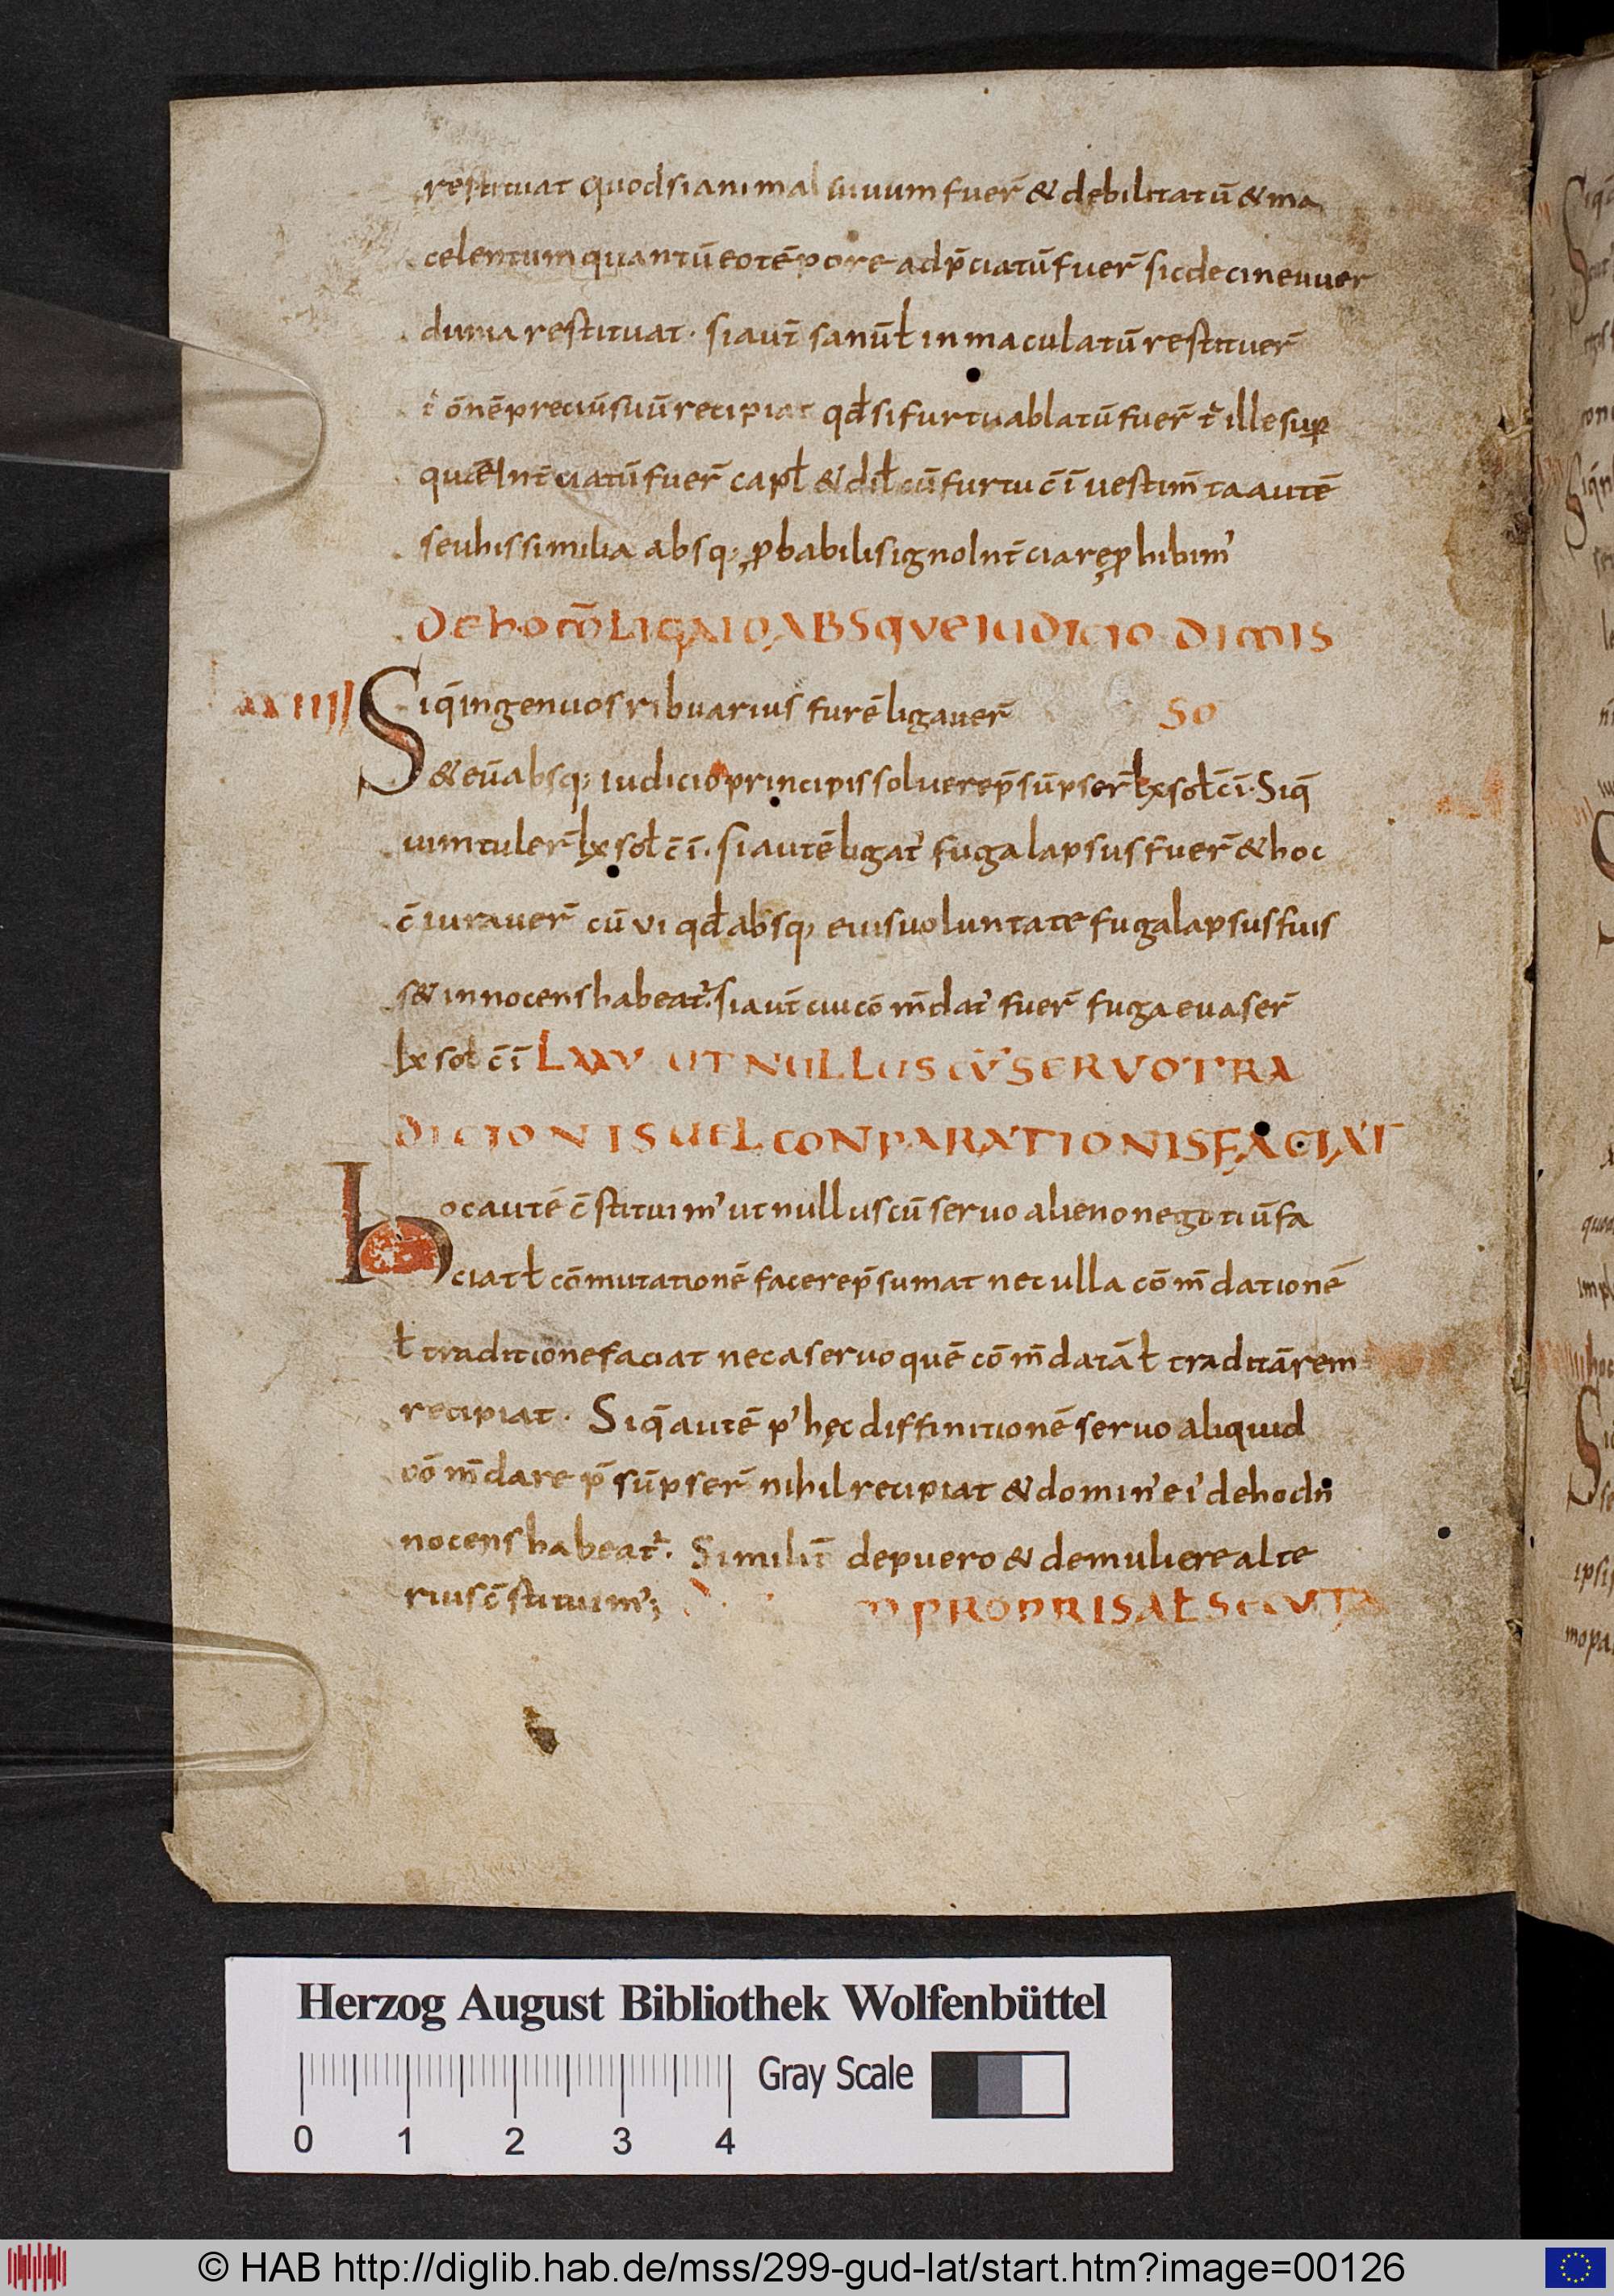 restituat quodsi animal uiuum fuer̄ & debilitatū & ma
celentum quantū eo tēpore adp̄ciatū fuer̄ sic decineuuer
dunia restituat · si aut̄ sanū ł inmaculatū restituer̄
t̄ ōnē preciū suū recipiat qđ si furtu ablatū fuer̄ t̄ ille sup̱
quē Int̄ciatū fuer̄ capł & dił cū furtu c̄ ī uestim̄ta autē
seu his similia absq; ꝓbabili signo Int̄ciare ꝓhibim'
DE HOM̄ LIGATO ABSQVE IUDICIO DIMIS
SO
Siq̄ ingenuos ribuarius furē ligauer̄
& eū absq; iudicio principis soluere p̄sūpser̄ lx soł c̄ ī · Siq̄
uim tuler̄ lx soł c̄ ī · si autē ligat' fuga lapsus fuer̄ & hoc
c̄iurauer̄ cū vi qđ absq; eius uoluntate fuga lapsus fuis
s& innocens habeat' · si aut̄ cui cōm̄dat' fuer̄ fuga euaser̄
lx soł c̄ ī LXXV UT NULLUS CŪ SERVO TRA
DICIONIS UEL CONPARATIONIS FACIAT
hoc autē c̄stituim' ut nullus cū seruo alieno negotiū fa
ciat ł cōmutationē facere p̄sumat nec ulla cōm̄dationē
ł traditione faciat nec a seruo quē cōm̄datā ł traditā rem
recipiat · Siq̄ autē p' hęc diffinitionē seruo aliquid
cōm̄dare p̄sūpser̄ nihil recipiat & domin' ei' de hoc In
nocens habeat' · Similit̄ de puero & de muliere alte
rius c̄stituim';
PROPRISA Ł SECUTA